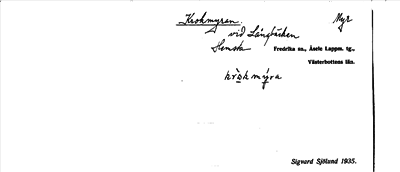 Krokmyran. Myr
vid Långbäcken
Hemska Fredrika sn., Åsele Lappm. tg.,
Västerbottens län.
Sigvard Sjölund 1935.